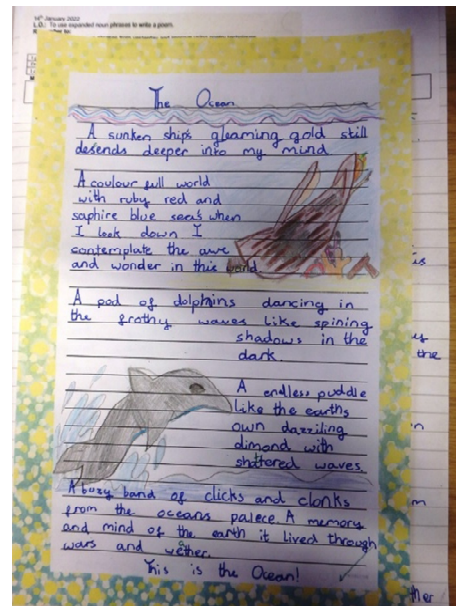 14th January 2022
L.O.: To use expanded noun phrases to write a poem.
The Ocean
A sunken ships gleaming gold still
desends deeper into my mind
A coulour full world
with ruby red and
saphire blue sea's when
I look down I
contemplate the awe
and wonder in this
A pod of dolphins dancing in
the frothy waves like spining
shadows in the
dark.
A endless puddle
like the earths
own dazziling
dimond with
shattered waves
A buzy band of clicks and clonks
from the oceans palece. A memory
and mind of the earth it lived through
wars and wether.
This is the Ocean!
the